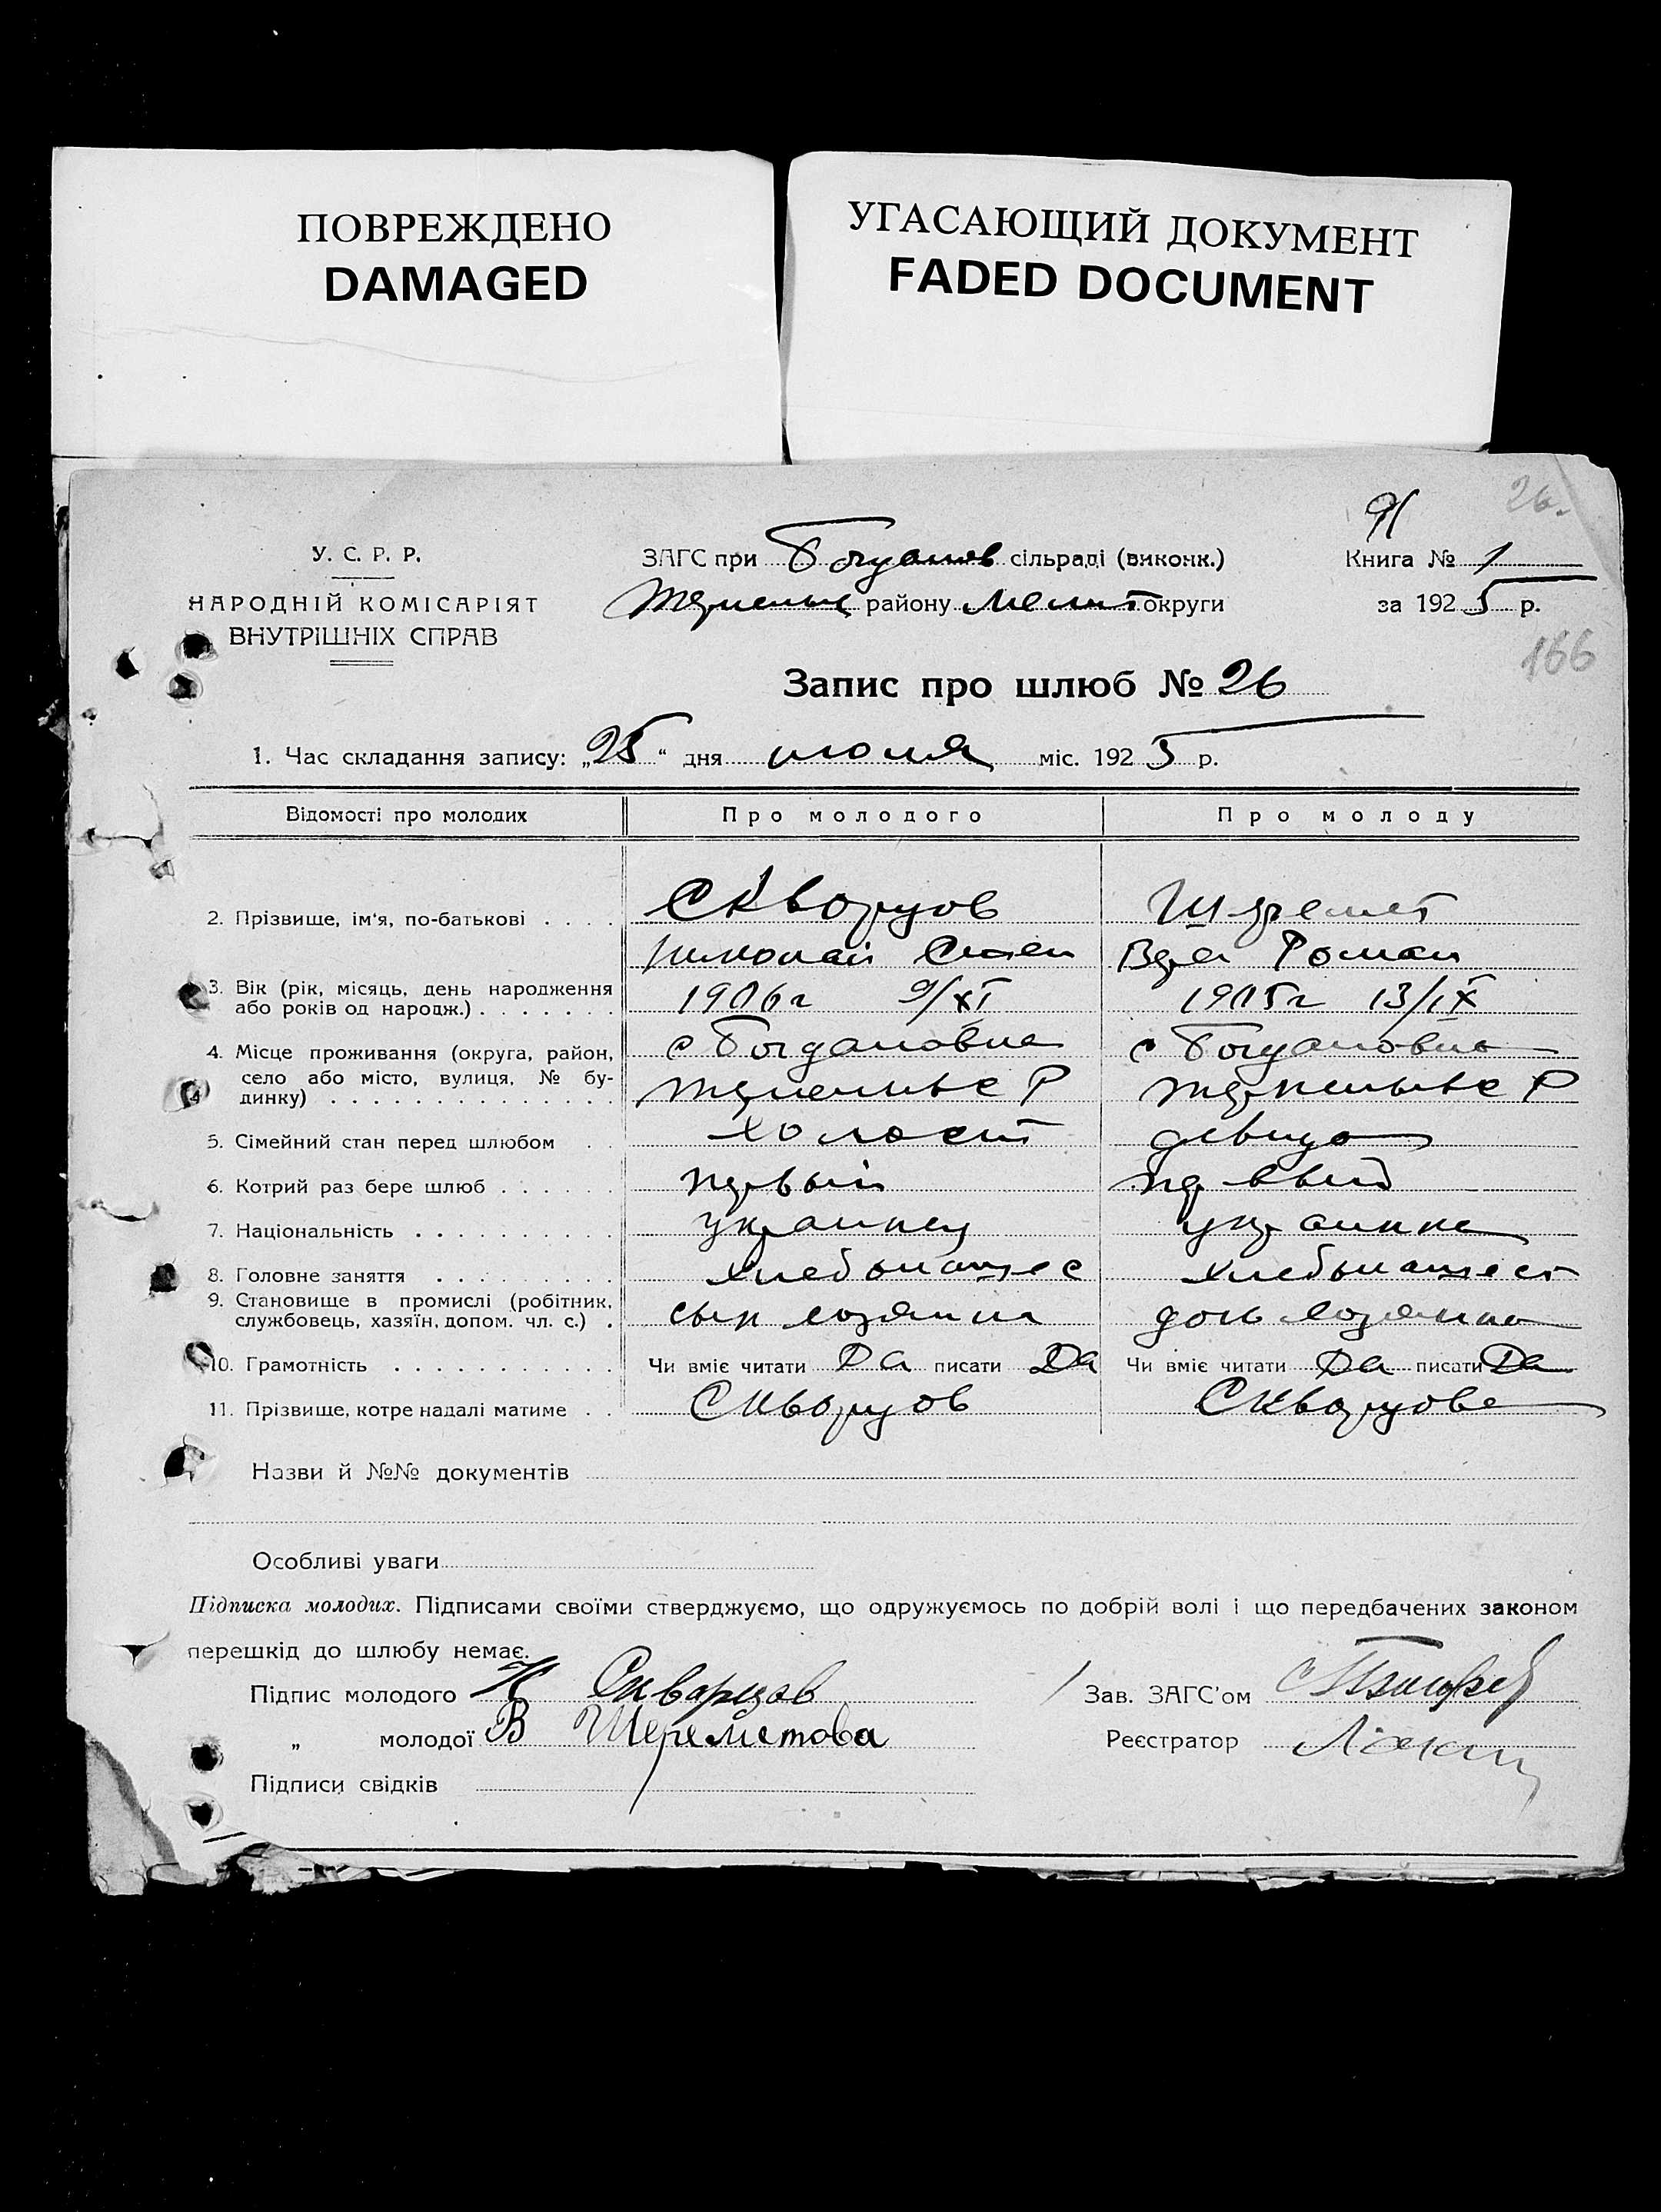 ПОВРЕЖДЕНО
DAMAGED
УГАСАЮЩИЙ ДОКУМЕНТ
FADED DOCUMENT
26.
91
У. С. Р. Р.
НАРОДНІЙ КОМІСАРІЯТ
ВНУТРІШНІХ СПРАВ
ЗАГС при Богданов сільраді (виконк.)
району Мелит округи
Книга № 1
за 1925 р.
166
Запис про шлюб № 26
1. Час складання запису: „25“ дня июля міс. 1925 р.
Відомості про молодих Про молодого Про молоду
2. Прізвище, ім'я, по-батькові . . . . Скворцов Шеремет
Николай Степ Вера Роман
3. Вік (рік, місяць, день народження або років од народж.) . . . . . . . 1906г 9/XI 1905г 13/IX
4. Місце проживання (округа, район, село або місто, вулиця, № будинку) . . . . с Богдановка с Богдановка
Р Р
5. Сімейний стан перед шлюбом . . холост девица
6. Котрий раз бере шлюб . . . . . . первый первый
7. Національність . . . . . . . . . . украинец украинка
8. Головне заняття . . . . . . . . . хлебопашес хлебопашест
9. Становище в промислі (робітник, службовець, хазяїн, допом. чл. с.) . сын хозяина дочь хозяина
10. Грамотність . . . . . . . . . . . Чи вміє читати Да писати Да Чи вміє читати Да писати Да
11. Прізвище, котре надалі матиме . . Скворцов Скворцова
Назви й №№ документів
Особливі уваги
Підписка молодих. Підписами своїми стверджуємо, що одружуємось по добрій волі і що передбачених законом
перешкід до шлюбу немає.
Підпис молодого Н Скварцов
Зав. ЗАГС'ом
„ молодої В Шереметова
Реєстратор
Підписи свідків